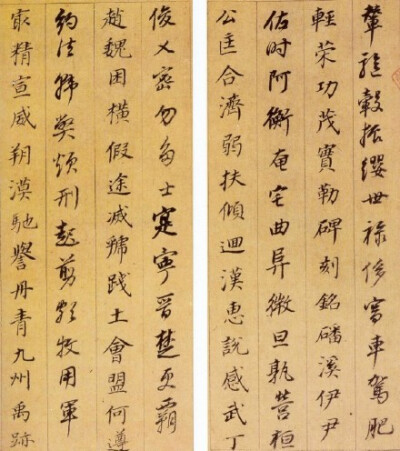 輦驅轂振纓世祿侈富車駕肥
輕策功茂實勒碑刻銘磻溪伊尹
佐時阿衡奄宅曲阜微旦孰營桓
公匡合濟弱扶傾迴漢惠說感武丁
俊乂密勿多士寔寧晉楚更霸
趙魏困橫假途滅虢踐土會盟何遵
約法韓弊煩刑起翦頗牧用軍
最精宣威朔漠馳譽丹青九州禹跡